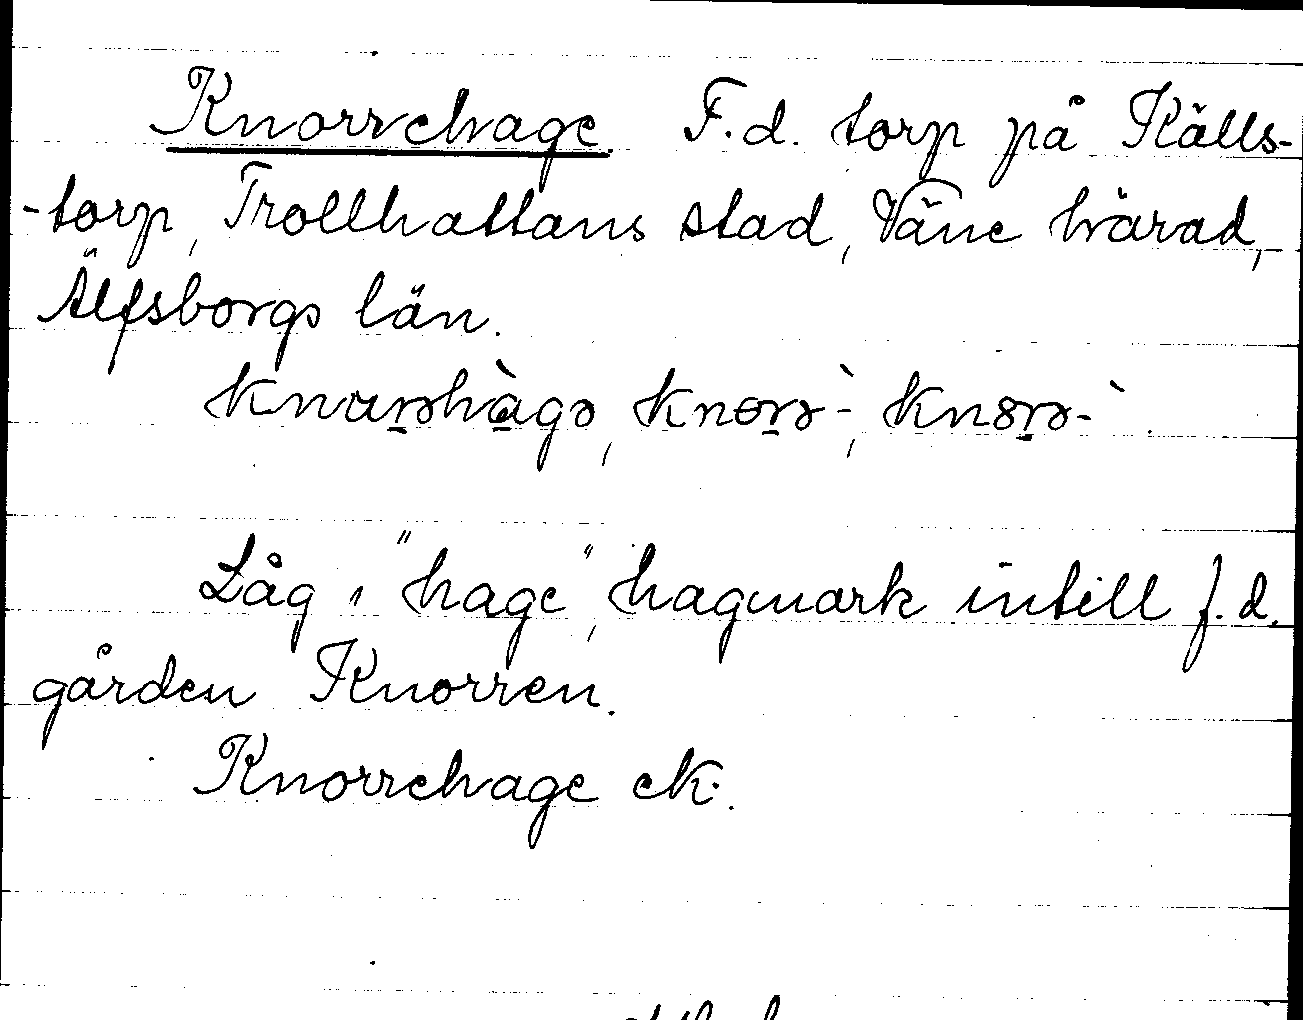 Knorrehage. F.d. torp på Källs-
-torp, Trollhattans stad, Väne härad,
Älfsborgs län.
Låg i "hage", hagmark intill f.d.
gården Knorren.
Knorrehage ek.